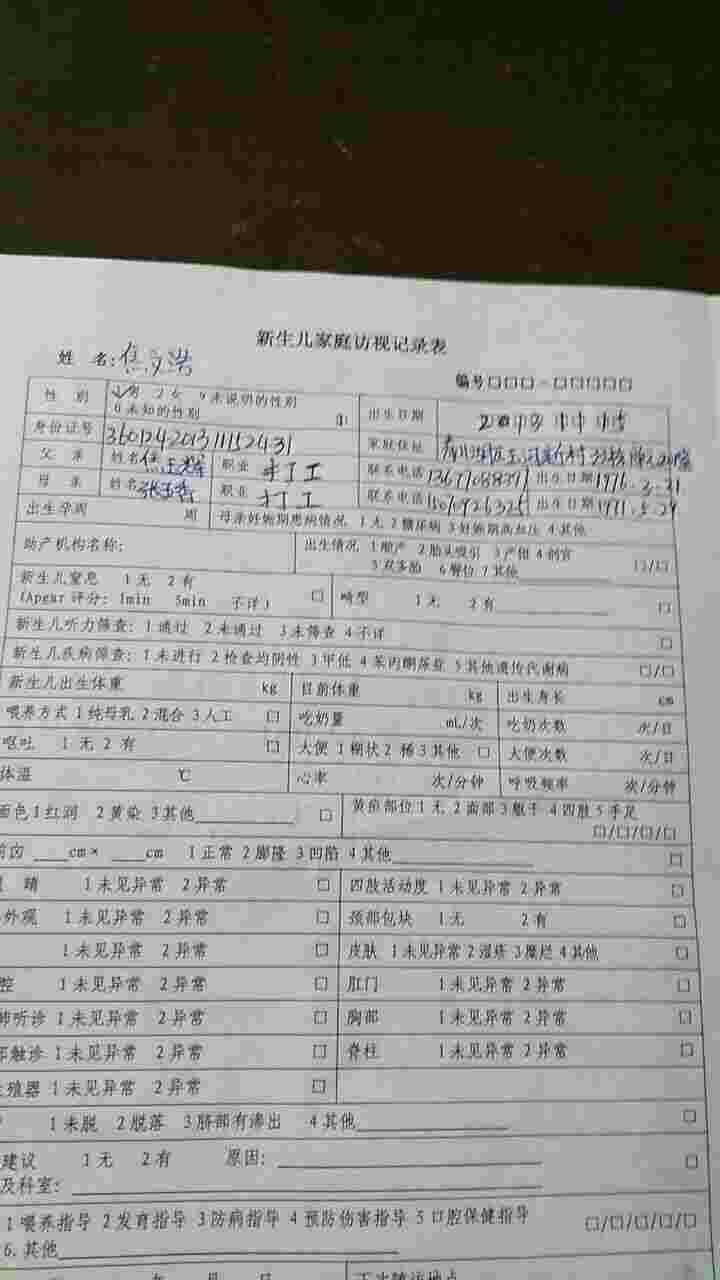 新生儿家庭访视记录表
姓 名:焦文浩
编号□□□-□□□□□
性 别 1男 2女 9未说明的性别 0未知的性别 □ 出生日期
身份证号 家庭住址
父 亲 姓名 职业 打工 联系电话 13677088397 出生日期1976.3.21
母 亲 姓名张玉香 职业 打工 联系电话 出生日期1991.5.29
出生孕周 周 母亲妊娠期患病情况 1无 2糖尿病 3妊娠期高血压 4其他
助产机构名称: 出生情况 1顺产 2胎头吸引 3产钳 4剖宫
5双多胎 6臀位 7其他 □/□
新生儿窒息 1无 2有
(Apgar评分: 1min 5min 不详) □ 畸型 1无 2有 □
新生儿听力筛查: 1通过 2未通过 3未筛查 4不详 □
新生儿疾病筛查: 1未进行 2检查均阴性 3甲低 4苯丙酮尿症 5其他遗传代谢病 □/□
新生儿出生体重 kg 目前体重 kg 出生身长 cm
喂养方式 1纯母乳 2混合 3人工 □ 吃奶量 mL/次 吃奶次数 次/日
呕吐 1无 2有 □ 大便 1糊状 2稀 3其他 □ 大便次数 次/日
体温 ℃ 心率 次/分钟 呼吸频率 次/分钟
面色 1红润 2黄染 3其他 □ 黄疸部位 1无 2面部 3躯干 4四肢 5手足
□/□/□/□
前囟 cm× cm 1正常 2膨隆 3凹陷 4其他 □
睛 1未见异常 2异常 □ 四肢活动度 1未见异常 2异常 □
外观 1未见异常 2异常 □ 颈部包块 1无 2有 □
1未见异常 2异常 □ 皮肤 1未见异常 2湿疹 3糜烂 4其他 □
腔 1未见异常 2异常 □ 肛门 1未见异常 2异常 □
肺听诊 1未见异常 2异常 □ 胸部 1未见异常 2异常 □
部触诊 1未见异常 2异常 □ 脊柱 1未见异常 2异常 □
殖器 1未见异常 2异常 □
1未脱 2脱落 3脐部有渗出 4其他 □
建议 1无 2有 原因: □
及科室:
1喂养指导 2发育指导 3防病指导 4预防伤害指导 5口腔保健指导
6.其他 □/□/□/□/□
年 月 日 下次随访地点